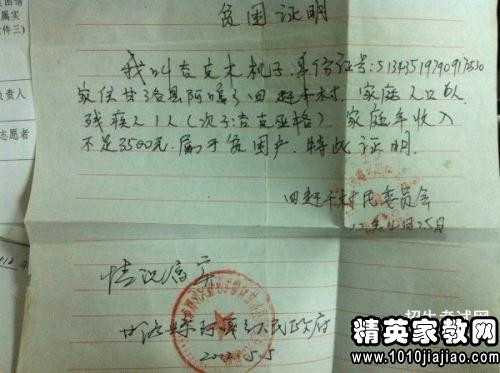 属实
件三)
负责人
志愿者
贫困证明
我叫吉克木机子,身份证号:
家住甘洛县阿嘎乡 家庭人口
残疾人1人(次子:吉克 家庭年收入
不足3500元.属于贫困户.特此证明.
村民委员会
25日
情况属实
甘洛县阿嘎乡人民政府
2012.5.5
招生考试网
精英家教网
www.1010jiajiao.com